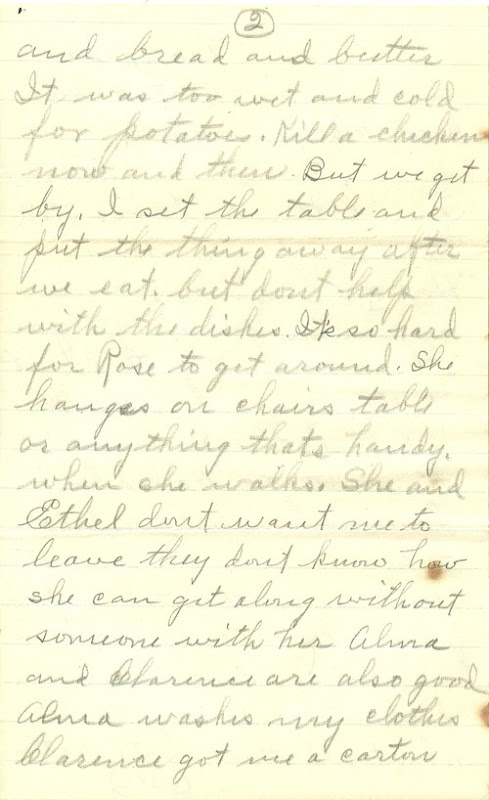 2
and bread and butter
It was too wet and cold
for potatoes. Kill a chicken
now and then. But we get
by. I set the table and
put the thing away after
we eat. but dont help
with the dishes. Its so hard
for Rose to get around. She
hanges on chairs table
or anything thats handy.
when she walks. She and
Ethel dont want me to
leave they dont know how
she can get along without
someone with her Alma
and Clarence are also good
Alma washes my clothes
Clarence got me a carton